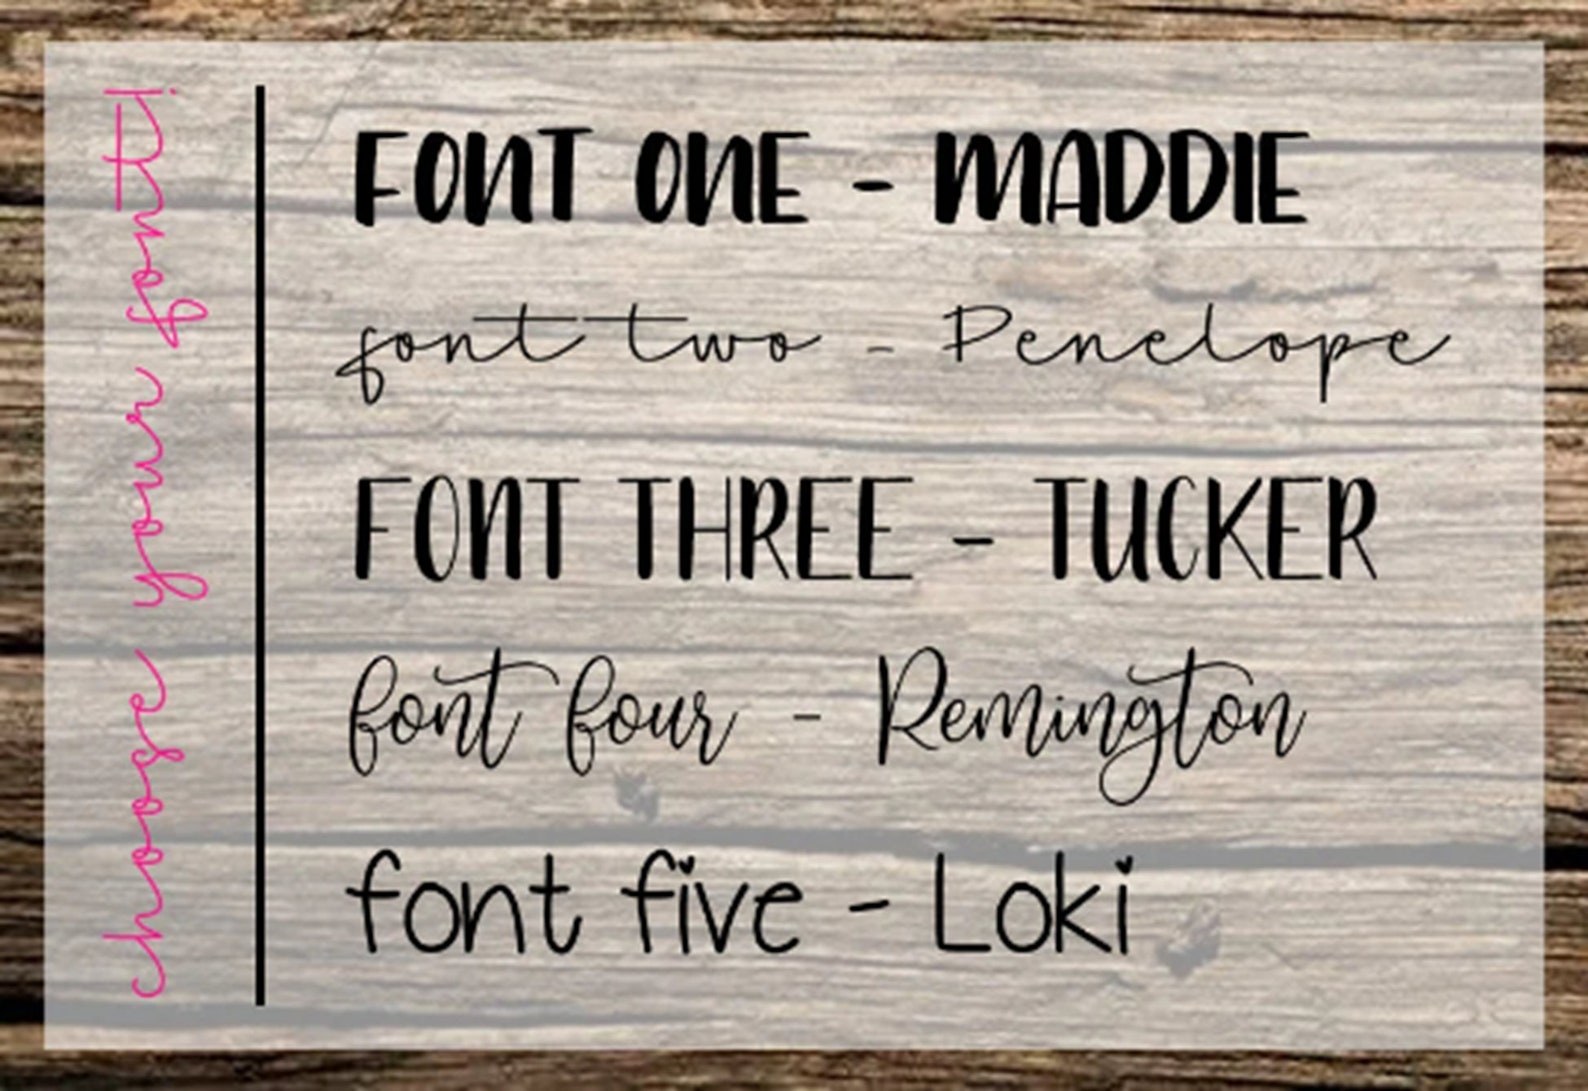 choose your font!
FONT ONE - MADDIE
font two - Penelope
FONT THREE - TUCKER
font four - Remington
font five - Loki